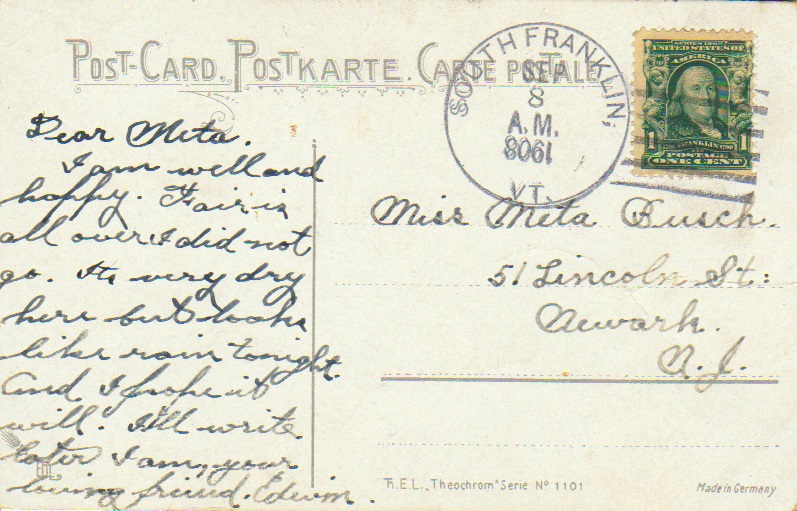 POST-CARD. POSTKARTE. CARTE POSTALE
SOUTH FRANKLIN,
SEP
8
A.M.
1908
VT.
SERIES 1902
UNITED STATES OF
AMERICA
FRANKLIN
1 1
POSTAGE
ONE CENT
Dear Meta.
I am well and
happy. Fair is
all over I did not
go. Its very dry
here but looks
like rain tonight.
And I hope it
will. I'll write
later I am, your
loving friend. Edwin.
Miss Meta Busch.
51 Lincoln St:
Newark.
N.J.
Th.E.L. „Theochrom" Serie Nº 1101
Made in Germany